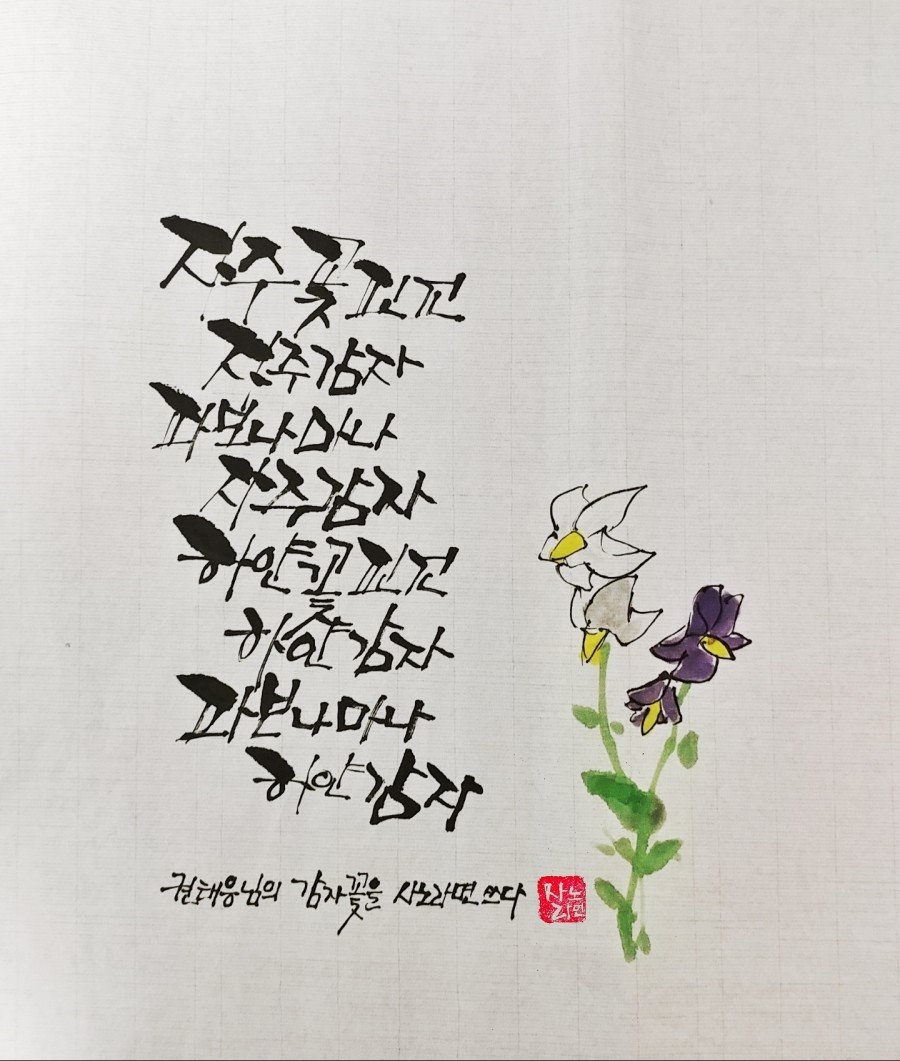 자주꽃핀건
자주감자
파보나마나
자주감자
하얀꽃핀건
하얀감자
파보나마나
하얀감자
권태응님의 감자꽃을 사노라면 쓰다
사노
라면